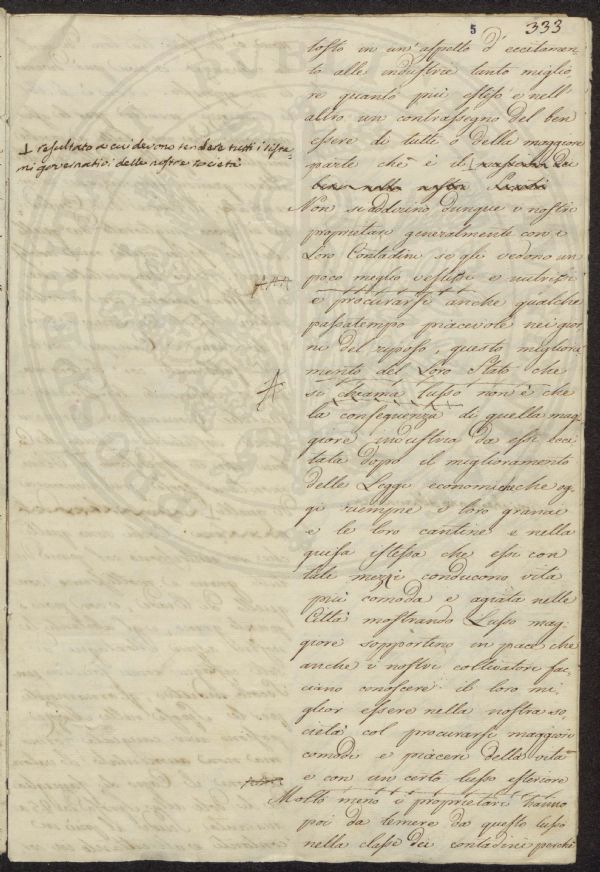 5 333
tosto in un' aspetto d' eccitamen-
to alle industrie tanto miglio
re quanto più esteso e nell'
altro un contrassegno del ben
essere di tutte o della maggiore
parte che è il
⊥ resultato a cui devono tendere tutti i siste-
mi governativi delle nostre società
Non si adirino dunque i nostri
proprietari generalmente con i
Loro Contadini se gli vedono un
poco meglio vestirsi e nutrirsi
e procurarsi anche qualche
passatempo piacevole nei gior
ni del riposo, questo migliora
mento del Loro Stato che
si chiama lusso non è che
la conseguenza di quella mag
giore industria da essi eci
tata dopo il miglioramento
delle Leggi economiche che og
gi riempne i loro granai
e le loro cantine e nella
guisa istessa che essi con
tale mezzi conducono vita
più comoda e agiata nelle
Città mostrando Lusso mag
giore sopportino in pace che
anche i nostri coltivatori fac
ciano conoscere il loro mi
glior essere nella nostra so
cietà col procurarsi maggiori
comodi e piaceri della vita
e con un certo lusso esteriore
Molto meno i proprietari hanno
poi da temere da questo lusso
nella classe dei contadini perché